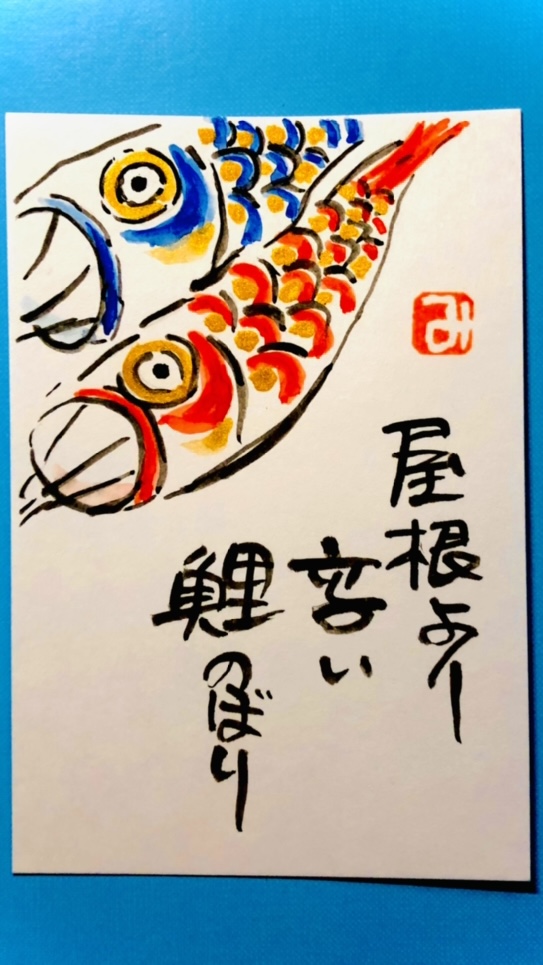 屋根より
高い
鯉のぼり
み